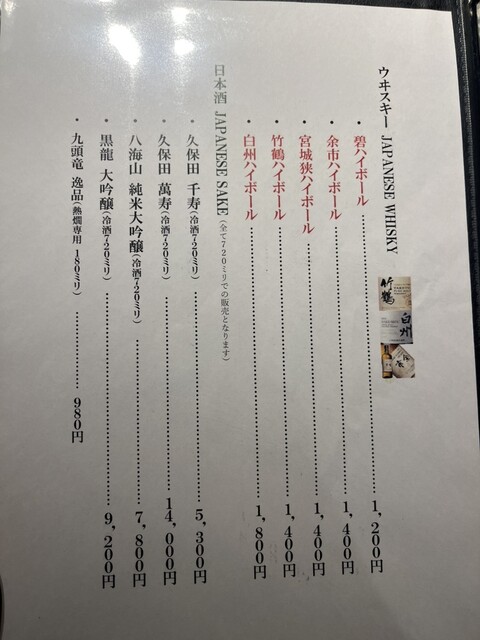 ウヰスキー JAPANESE WHISKY
竹鶴
白州
・碧ハイボール 1,200円
・余市ハイボール 1,400円
・宮城狭ハイボール 1,400円
・竹鶴ハイボール 1,400円
・白州ハイボール 1,800円
日本酒 JAPANESE SAKE (全て720ミリでの販売となります)
・久保田 千寿(冷酒720ミリ) 5,300円
・久保田 萬寿(冷酒720ミリ) 14,000円
・八海山 純米大吟醸(冷酒720ミリ) 7,800円
・黒龍 大吟醸(冷酒720ミリ) 9,200円
・九頭竜 逸品(熱燗専用 180ミリ) 980円